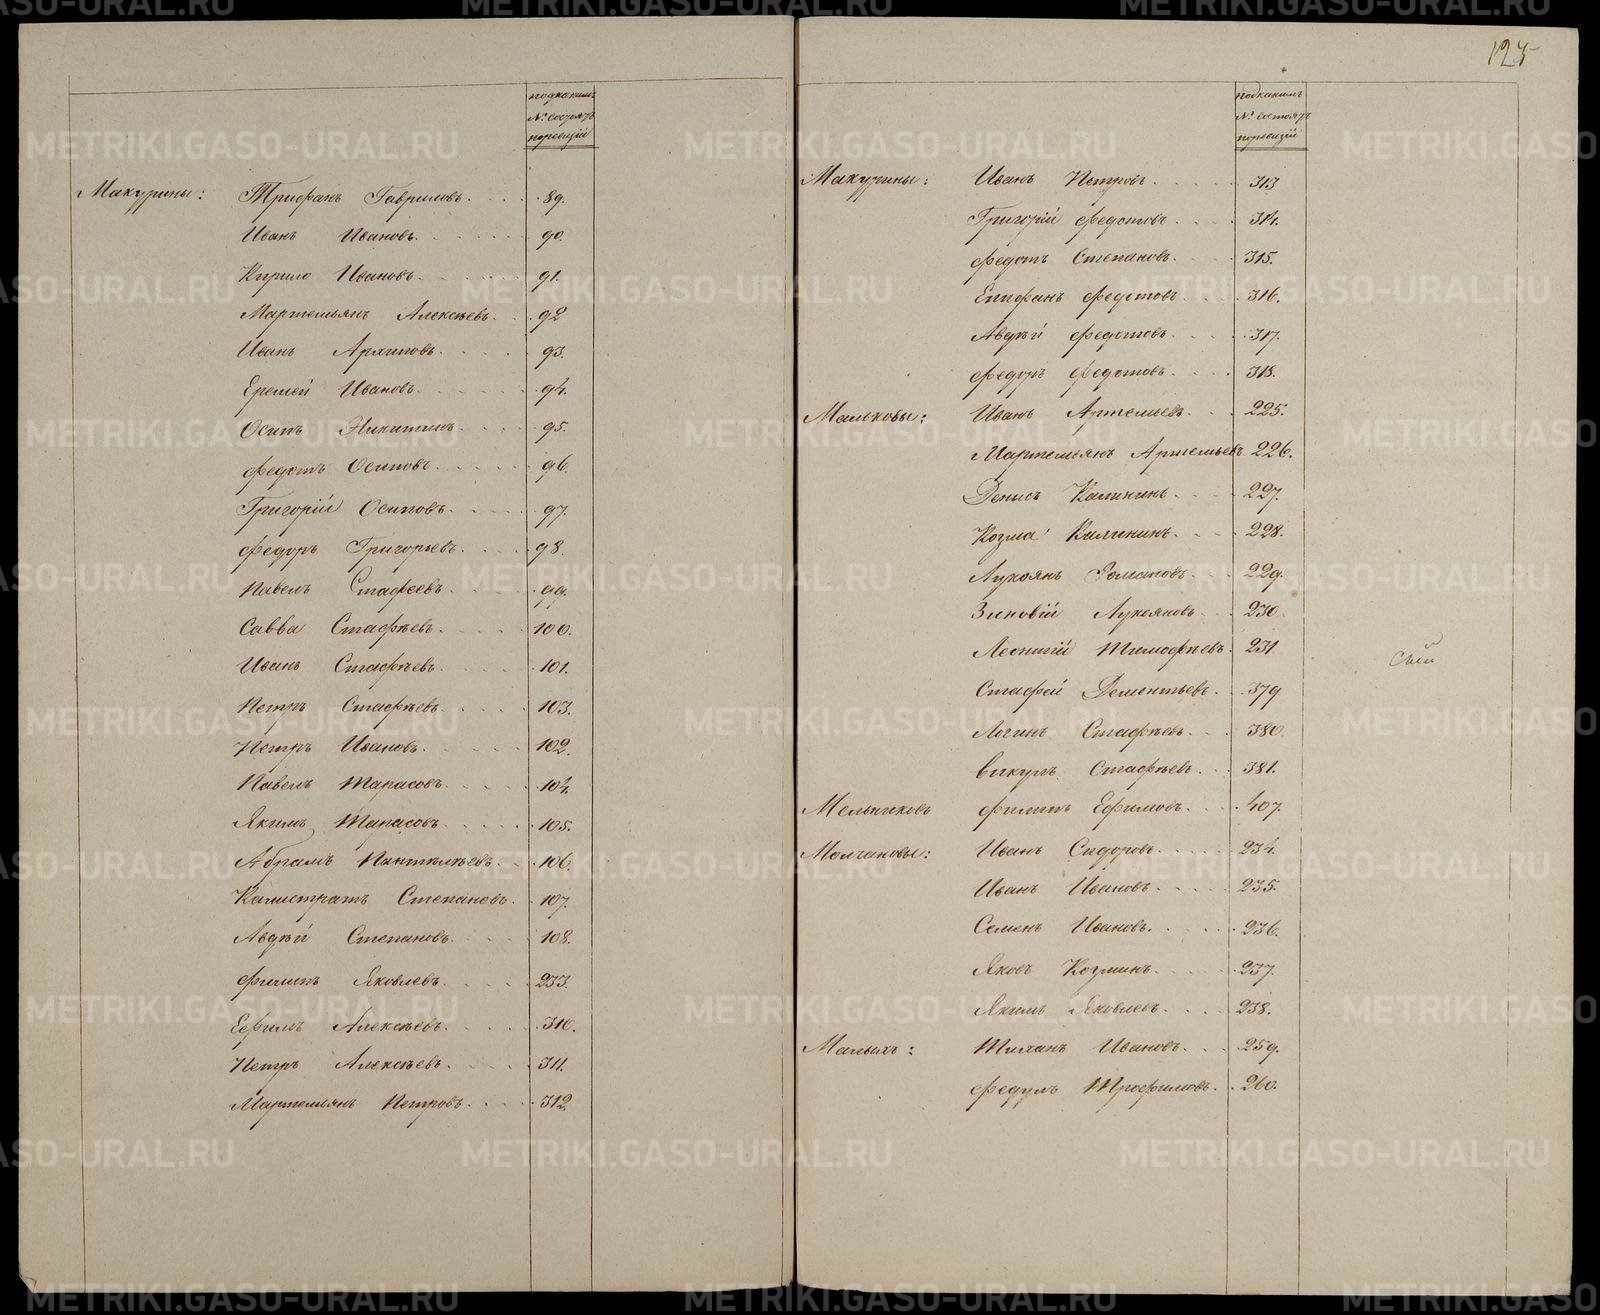 125
подкакимъ
№ состоятъ
поревизіи
Макурины: Трифанъ Гавриловъ 89.
Иванъ Ивановъ 90.
Кирило Ивановъ 91.
Мартемьянъ Алексѣевъ 92
Иванъ Архиповъ 93.
Еремей Ивановъ 94.
Осипъ Никитинъ 95.
Федотъ Осиповъ 96.
Григорій Осиповъ 97.
Федоръ Григорьевъ 98.
Павелъ Стафеевъ 99.
Савва Стафѣевъ 100.
Иванъ Стафѣевъ 101.
Петръ Стафѣевъ 103.
Петръ Ивановъ 102.
Павелъ Тарасовъ 104.
Якимъ Тарасовъ 105.
Абрамъ Пантелѣевъ 106.
Калистратъ Степановъ 107.
Авдѣй Степановъ 108.
Филипъ Яковлевъ 233.
Ефимъ Алексѣевъ 310.
Петръ Алексѣевъ 311.
Мартемьянъ Петровъ 312.
подкакимъ
№ состоятъ
поревизіи
Макурины: Иванъ Петровъ 313
Григорій Федотовъ 314.
Федотъ Степановъ 315.
Епифанъ Федотовъ 316.
Авдѣй Федотовъ 317.
Федоръ Федотовъ 318.
Мальковы: Иванъ Артемьевъ 225.
Мартемьянъ Артемьевъ 226.
Денисъ Калининъ 227.
Козма Калининъ 228.
Лукоянъ Романовъ 229.
Зиновій Лукояновъ 230
Леонтій Тимофѣевъ 231
Стафей Дементьевъ 379
Логинъ Стафѣевъ 380.
Викулъ Стафѣевъ 381.
Мельниковъ Филипъ Ефимовъ 407.
Молчановы: Иванъ Сидоровъ 234.
Иванъ Ивановъ 235.
Семенъ Ивановъ 236.
Яковъ Козминъ 237.
Якимъ Яковлевъ 238.
Малыхъ: Тиханъ Ивановъ 259.
Федулъ Трофимовъ 260.
METRIKI.GASO-URAL.RU